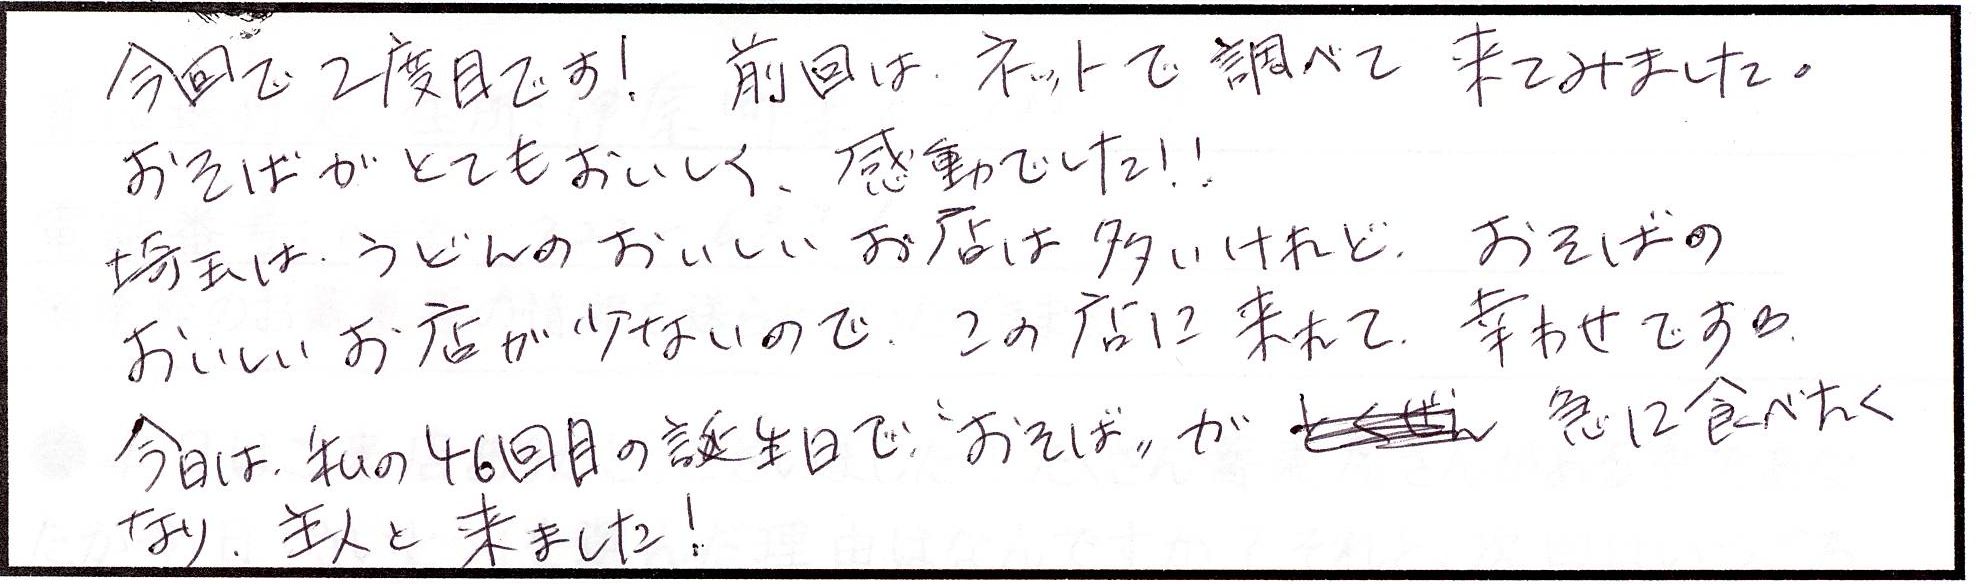 今回で2度目です! 前回は、ネットで調べて来てみました。
おそばがとてもおいしく、感動でした!!
埼玉は、うどんのおいしいお店は多いけれど、おそばの
おいしいお店が少ないので、この店に来れて、幸わせです。
今日は、私の46回目の誕生日で、"おそば"が 急に食べたく
なり、主人と来ました!